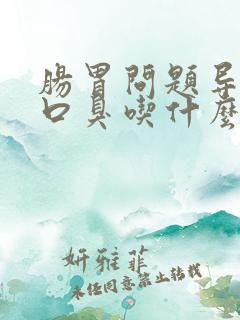 腸胃問題导
口臭喫什麽
妍雅菲
未经同意禁止转载